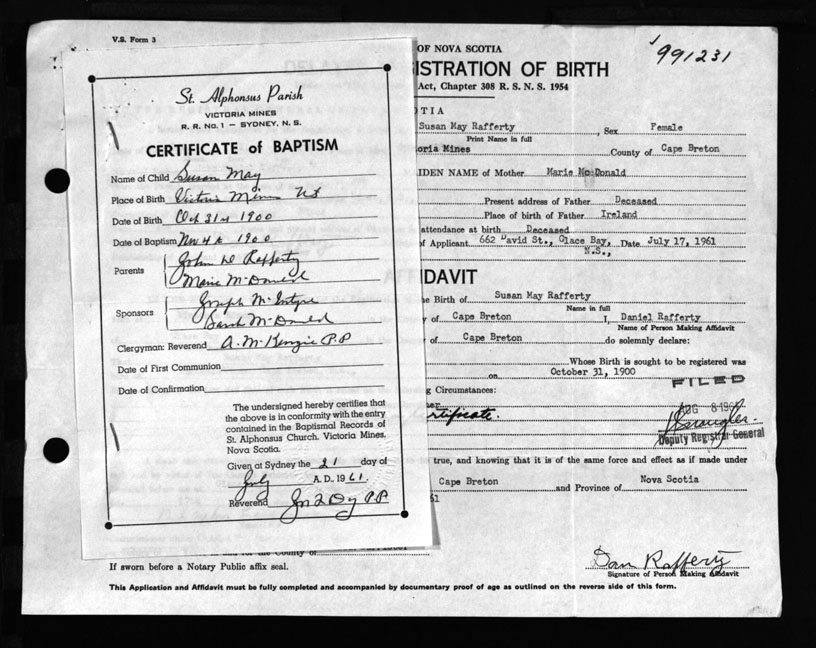 V.S. Form 3
St. Alphonsus Parish
VICTORIA MINES
R. R. No. 1 — SYDNEY, N. S.
CERTIFICATE OF BAPTISM
Name of Child Susan May
Place of Birth Victoria Mines NS
Date of Birth Oct 31st 1900
Date of Baptism Nov 4th 1900
Parents
John D Rafferty
Marie McDonald
Sponsors
Joseph McIntyre
Sarah McDonald
Clergyman: Reverend A. McKenzie P.P
Date of First Communion
Date of Confirmation
The undersigned hereby certifies that
the above is in conformity with the entry
contained in the Baptismal Records of
St. Alphonsus Church, Victoria Mines,
Nova Scotia.
Given at Sydney the 21 day of
July A. D., 1961.
Reverend P.P.
OF NOVA SCOTIA
991231
ISTRATION OF BIRTH
Act, Chapter 308 R. S. N. S. 1954
OTIA
Susan May Rafferty, Sex Female
Print Name in full
oria Mines County of Cape Breton
AIDEN NAME of Mother Marie McDonald
Present address of Father Deceased
Place of birth of Father Ireland
attendance at birth Deceased
of Applicant 662 David St., Glace Bay, Date July 17, 1961
N.S.,
FIDAVIT
he Birth of Susan May Rafferty
Name in full
y of Cape Breton I, Daniel Rafferty
Name of Person Making Affidavit
of Cape Breton do solemnly declare:
Whose Birth is sought to be registered was
on October 31, 1900
FILED
g Circumstances:
AUG 8 196
rtificate.
Deputy Registrar General
true, and knowing that it is of the same force and effect as if made under
Cape Breton and Province of Nova Scotia
61
and for the County of
If sworn before a Notary Public affix seal.
Dan Rafferty
Signature of Person Making Affidavit
This Application and Affidavit must be fully completed and accompanied by documentary proof of age as outlined on the reverse side of this form.